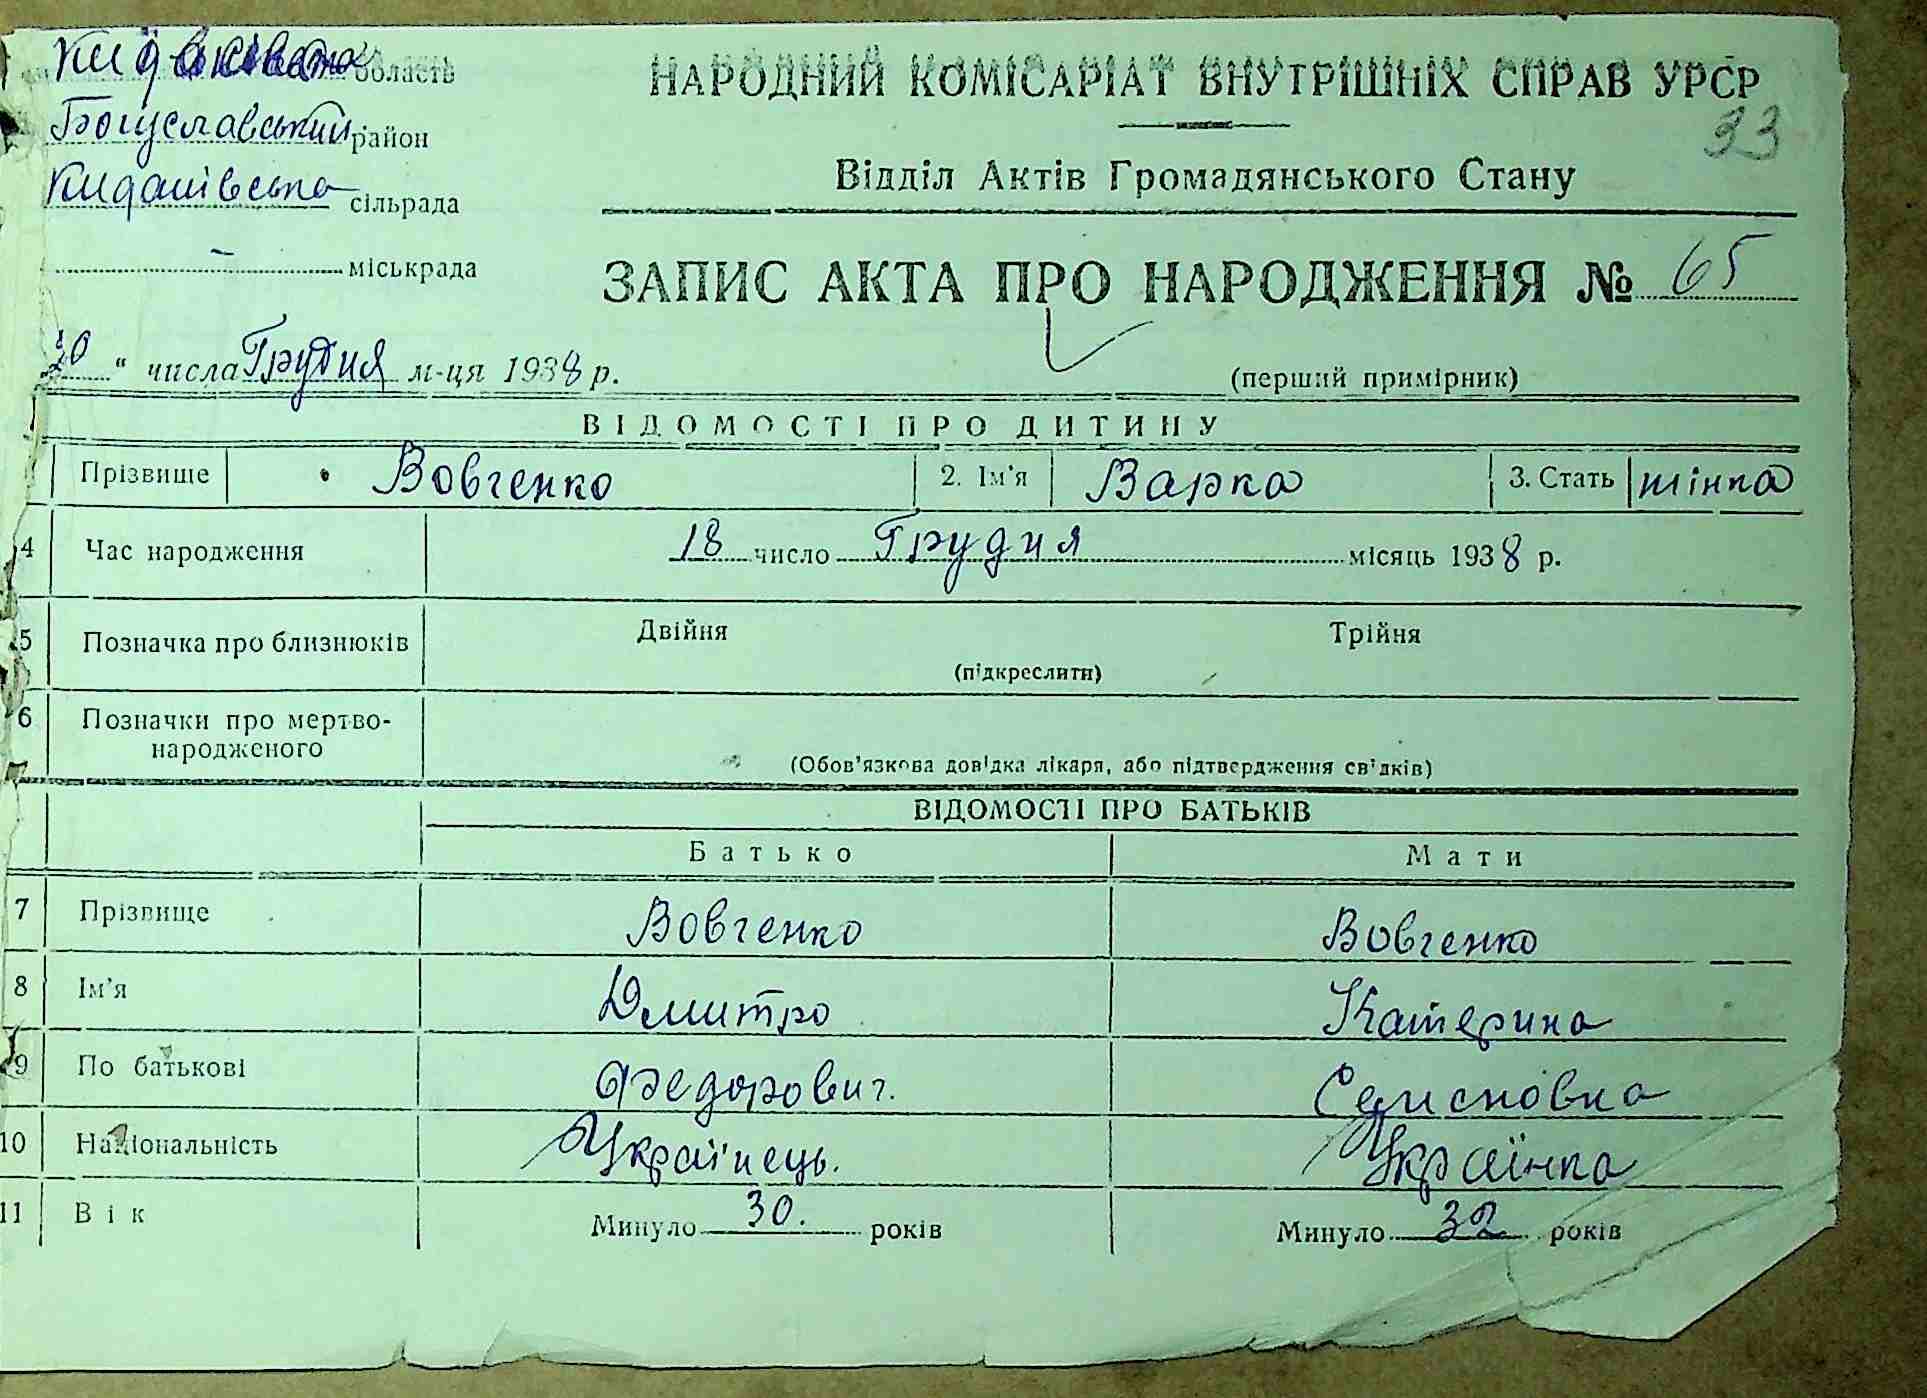 область
Богуславський район
Кидошівська сільрада
— міськрада
НАРОДНИЙ КОМІСАРІАТ ВНУТРІШНІХ СПРАВ УРСР
33
Відділ Актів Громадянського Стану
ЗАПИС АКТА ПРО НАРОДЖЕННЯ № 65
30 “ числа Грудня м-ця 1938 р.
(перший примірник)
ВІДОМОСТІ ПРО ДИТИНУ
Прізвище Вовченко 2. Ім'я Варка 3. Стать жінка
4 Час народження 18 число Грудня місяць 1938 р.
5 Позначка про близнюків Двійня Трійня
(підкреслити)
6 Позначки про мертво-
народженого
(Обов'язкова довідка лікаря, або підтвердження свідків)
ВІДОМОСТІ ПРО БАТЬКІВ
Батько Мати
7 Прізвище Вовченко Вовченко
8 Ім'я Дмитро Катерина
9 По батькові Федорович. Семеновна
10 Національність Українець. Українка
11 Вік Минуло 30. років Минуло 32 років